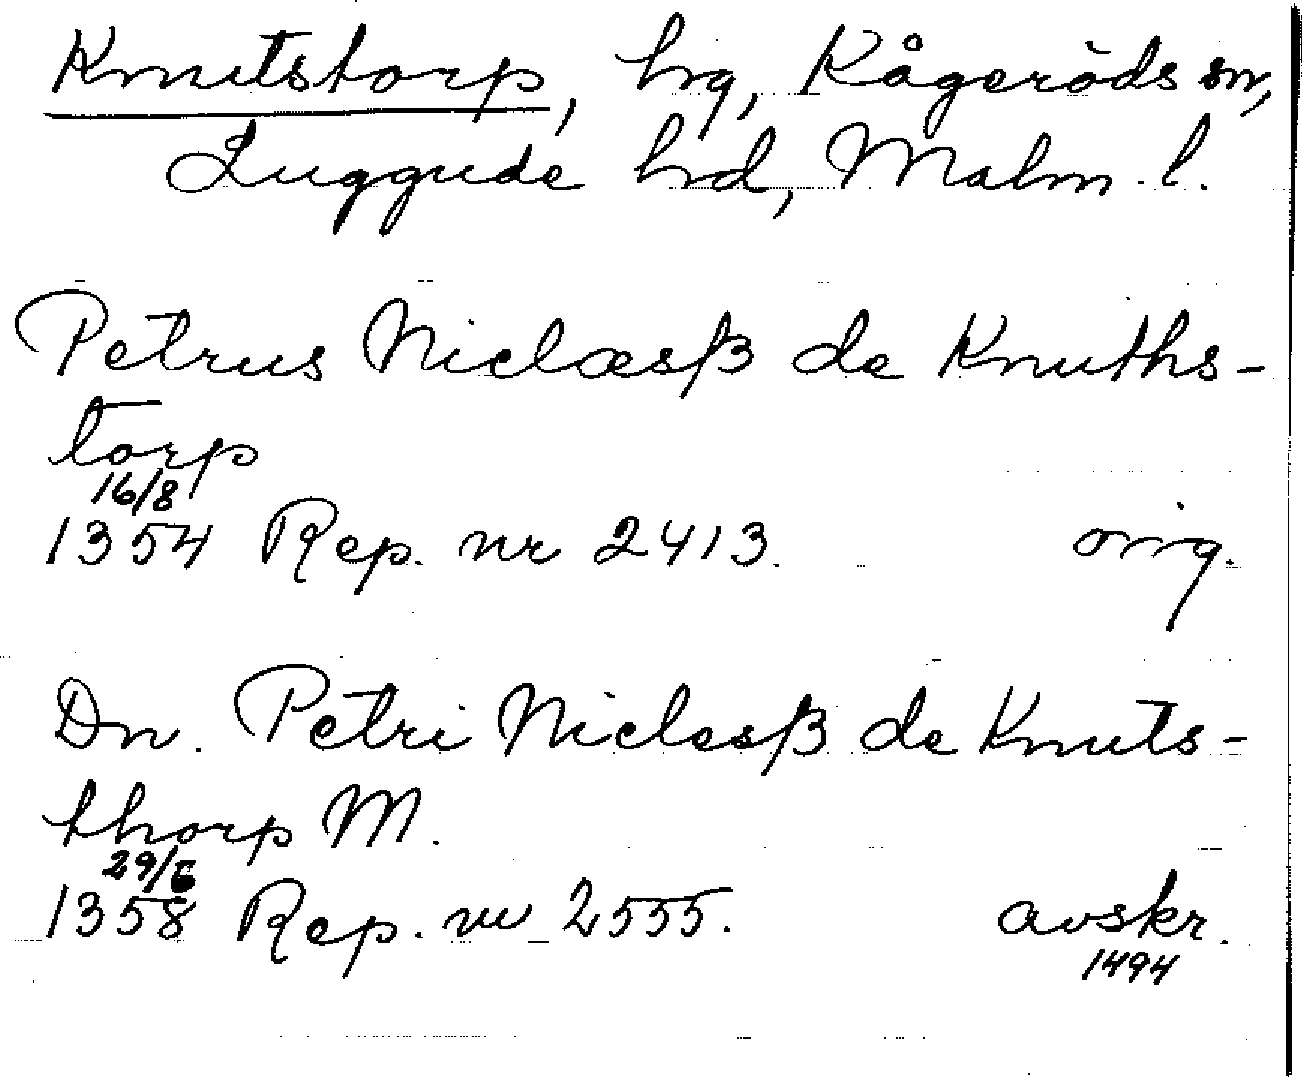 Knutstorp, hrg, Kågeröds sn,
Luggude hrd, Malm. l.
Petrus Niclæsß de Knuths-
torp
16/8
1354 Rep. nr 2413. orig.
Dn. Petri Niclesß de Knuts-
thorp M.
29/6
1358 Rep. nr 2555. avskr.
1494